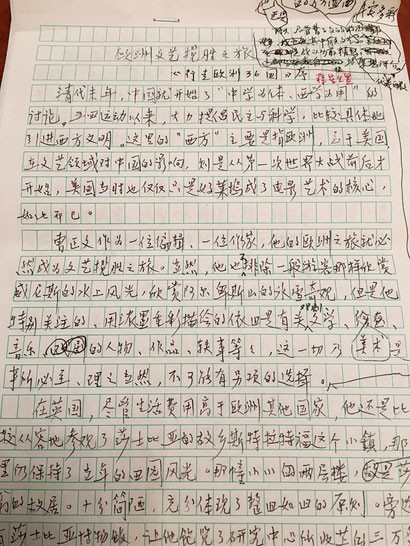 欧洲文艺揽胜之旅
《行走欧洲36国》序
清代末年，中国就开始了“中学为体、西学为用”的
讨论。五四运动以来，大力提倡民主与科学，比较具体地
引进西方文明。这里的“西方”主要是指欧洲，至于美国
在文艺领域对中国的影响，则是从第一次世界大战前后才
开始，美国当时也仅仅只是好莱坞成了电影艺术的核心，
如此而已。
曹正文作为一位编辑、一位作家，他的欧洲之旅就必
然成为文艺揽胜之旅。当然，他也不排除一般旅客那样欣赏
威尼斯的水上风光，欣赏阿尔卑斯山的冰雪奇观，但是他
特别关注的、用浓墨重彩描绘的依旧是有关文学、绘画、
音乐的人物、作品、轶事等等，这一切乃
事所必至、理之当然，不可能有另项的选择。
美术是
在英国，尽管生活费用高于欧洲其他国家，他还是比
较从容地参观了莎士比亚的故乡斯特拉特福这个小镇，那
里仍保持了当年的田园风光。那幢小小的两层楼，是莎
的故居。十分简陋，充分体现了整旧如旧的原则。旁边
莎士比亚博物馆，让他饱览了研究中心所收藏的三万